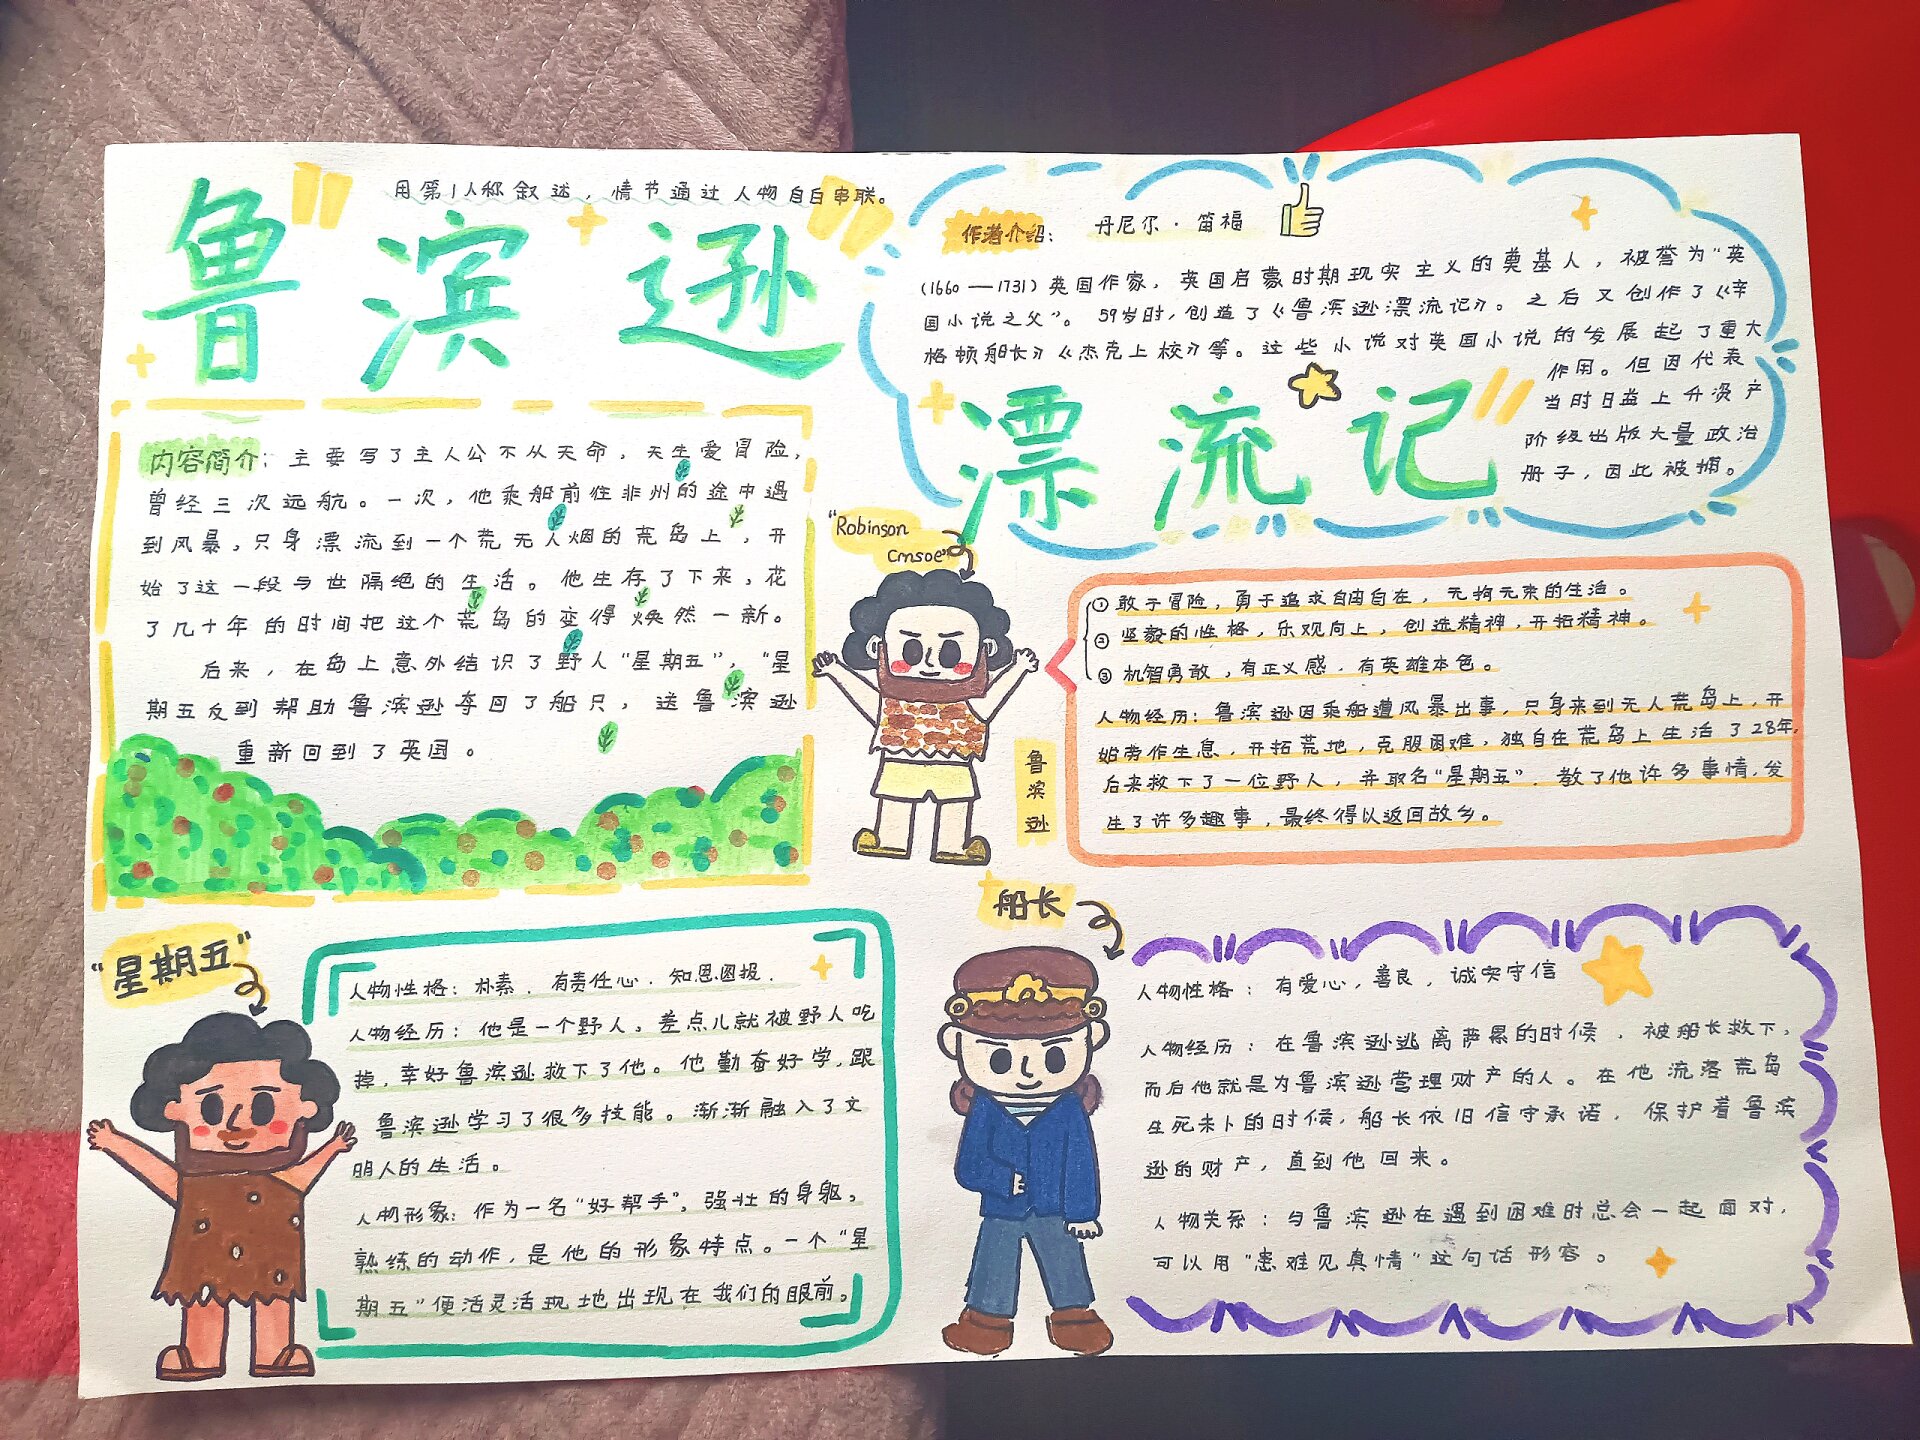 用第1人称叙述，情节通过人物自白串联。
鲁滨逊
漂流记
作者介绍：丹尼尔·笛福
(1660—1731)英国作家，英国启蒙时期现实主义的奠基人，被誉为“英
国小说之父”。59岁时，创造了《鲁滨逊漂流记》。之后又创作了《辛
格顿船长》《杰克上校》等。这些小说对英国小说的发展起了重大
作用。但因代表
当时日益上升资产
阶级出版大量政治
册子，因此被捕。
内容简介：主要写了主人公不从天命，天生爱冒险，
曾经三次远航。一次，他乘船前往非州的途中遇
到风暴，只身漂流到一个荒无人烟的荒岛上，开
始了这一段与世隔绝的生活。他生存了下来，花
了几十年的时间把这个荒岛的变得焕然一新。
后来，在岛上意外结识了野人“星期五”，“星
期五反到帮助鲁滨逊夺回了船只，送鲁滨逊
重新回到了英国。
“Robinson
Crnsoe”
鲁滨逊
①敢于冒险，勇于追求自由自在，无拘无束的生活。
②坚毅的性格，乐观向上，创造精神，开拓精神。
③机智勇敢，有正义感，有英雄本色。
人物经历：鲁滨逊因乘船遭风暴出事，只身来到无人荒岛上，开
始劳作生息，开拓荒地，克服困难，独自在荒岛上生活了28年，
后来救下了一位野人，并取名“星期五”．教了他许多事情，发
生了许多趣事，最终得以返回故乡。
“星期五”
人物性格：朴素．有责任心．知恩图报．
人物经历：他是一个野人。差点儿就被野人吃
掉，幸好鲁滨逊救下了他。他勤奋好学，跟
鲁滨逊学习了很多技能。渐渐融入了文
明人的生活。
人物形象：作为一名“好帮手”，强壮的身躯。
熟练的动作，是他的形象特点。一个“星
期五”便活灵活现地出现在我们的眼前。
船长
人物性格：有爱心，善良，诚实守信
人物经历：在鲁滨逊逃离萨累的时候，被船长救下，
而后他就是为鲁滨逊营理财产的人。在他流落荒岛
生死未卜的时候，船长依旧信守承诺．保护着鲁滨
逊的财产，直到他回来。
人物关系：与鲁滨逊在遇到困难时总会一起面对，
可以用“患难见真情”这句话形容。